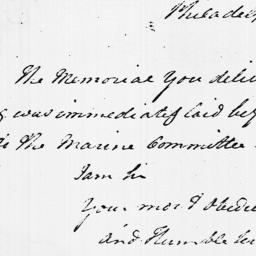 Philadel
The Memorial You deli
g was immediately laid bef
to the Marine Committee
I am Sir
Your most Obedie
And Humble Ser